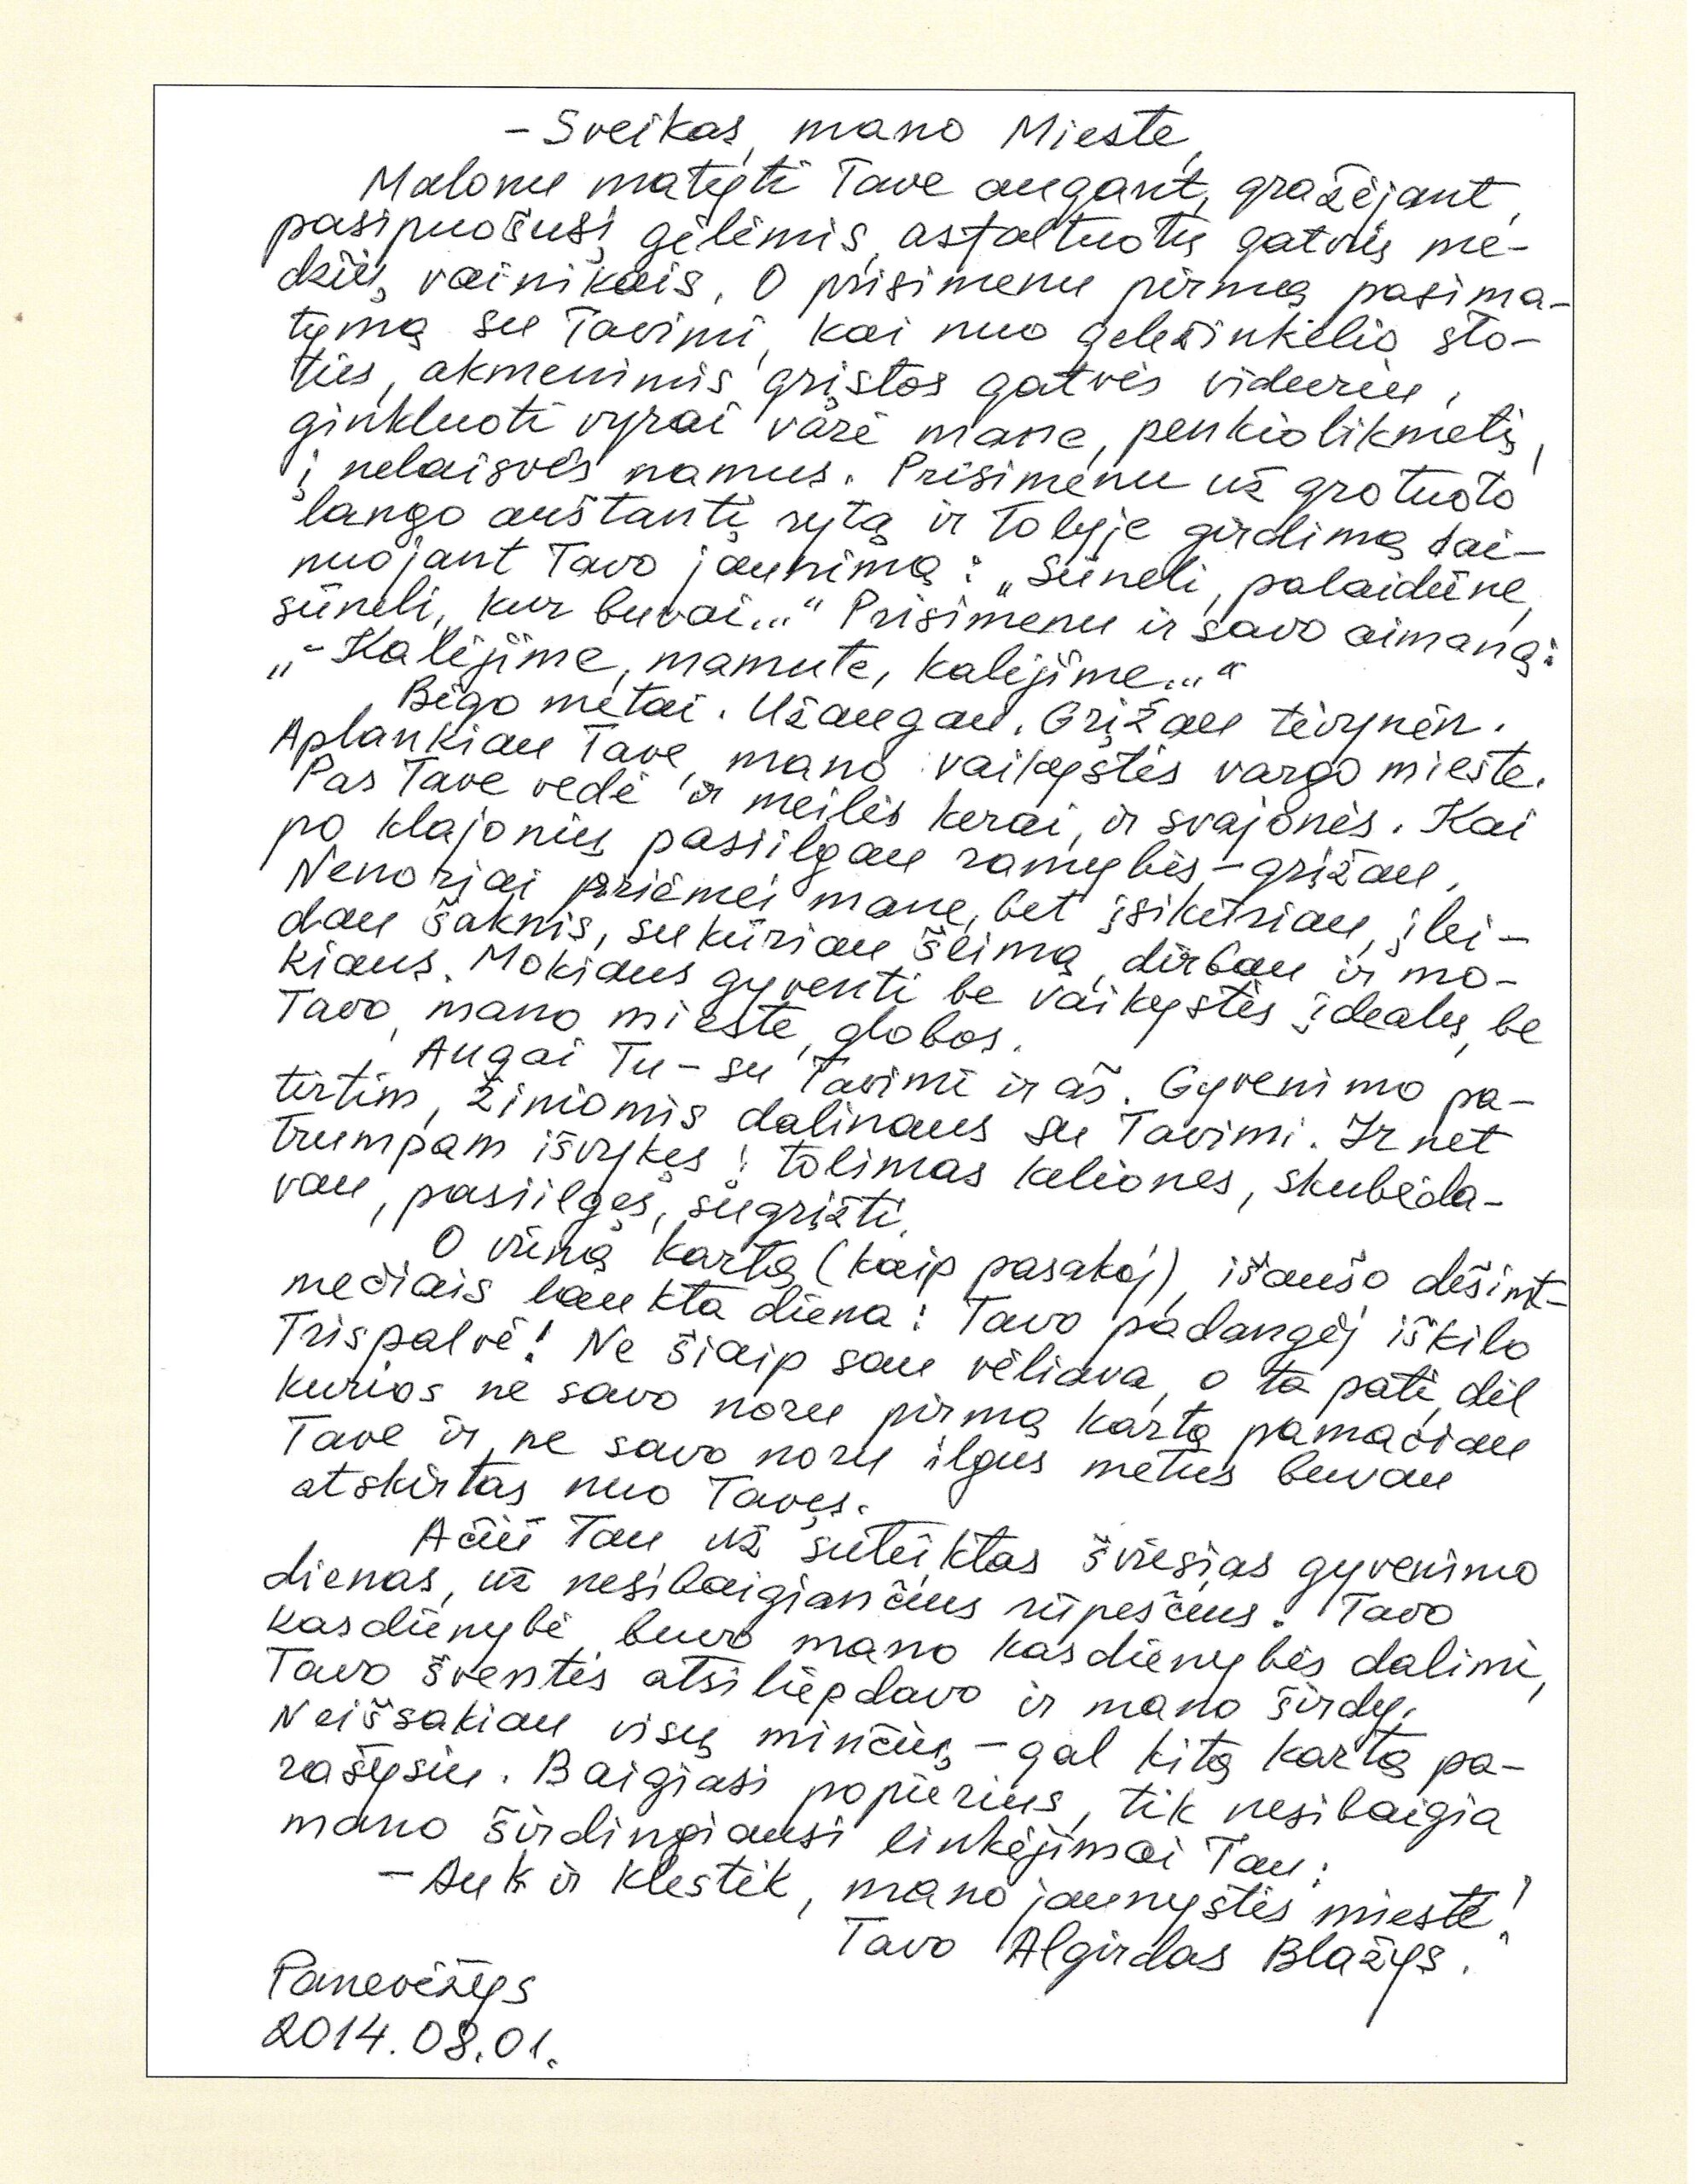 – Sveikas, mano Mieste,
Malonu matyti Tave augant, gražėjant,
pasipuošusį gėlėmis, asfaltuotų gatvių me-
džių vainikais. O prisimenu pirmą pasima-
tymą su Tavimi, kai nuo geležinkelio sto-
ties, akmenimis grįstos gatvės viduriu,
ginkluoti vyrai varė mane, penkiolikmetį,
į nelaisvės namus. Prisimenu už grotuoto
lango auštantį rytą ir tolyje girdimą dai-
nuojant Tavo jaunimą: „Sūneli, palaidūne,
sūneli, kur buvai...“ Prisimenu ir savo aimaną:
„– Kalėjime, mamute, kalėjime...“
Bėgo metai. Užaugau. Grįžau tėvynėn.
Aplankiau Tave, mano vaikystės vargo mieste.
Pas Tave vedė ir meilės kerai, ir svajonės. Kai
po klajonių pasiilgau ramybės – grįžau.
Nenoriai priėmei mane, bet įsikūriau, įlei-
dau šaknis, sukūriau šeimą, dirbau ir mo-
kiaus. Mokiaus gyventi be vaikystės idealų, be
Tavo, mano mieste, globos.
Augai Tu – su Tavimi ir aš. Gyvenimo pa-
tirtim, žiniomis dalinaus su Tavimi. Ir net
trumpam išvykęs į tolimas keliones, skubėda-
vau, pasiilgęs, sugrįžti.
O vieną kartą (kaip pasakoj), išaušo dešimt-
mečiais laukta diena: Tavo padangėj iškilo
Trispalvė! Ne šiaip sau vėliava, o ta pati, dėl
kurios ne savo noru pirmą kartą pamačiau
Tave ir ne savo noru ilgus metus buvau
atskirtas nuo Tavęs.
Ačiū Tau už suteiktas šviesias gyvenimo
dienas, už nesibaigiančius rūpesčius. Tavo
kasdienybė buvo mano kasdienybės dalimi,
Tavo šventės atsiliepdavo ir mano širdy.
Neišsakiau visų minčių – gal kitą kartą pa-
rašysiu. Baigiasi popierius, tik nesibaigia
mano širdingiausi linkėjimai Tau:
– Auk ir klestėk, mano jaunystės mieste!
Tavo Algirdas Blažys.
Panevėžys
2014.08.01.